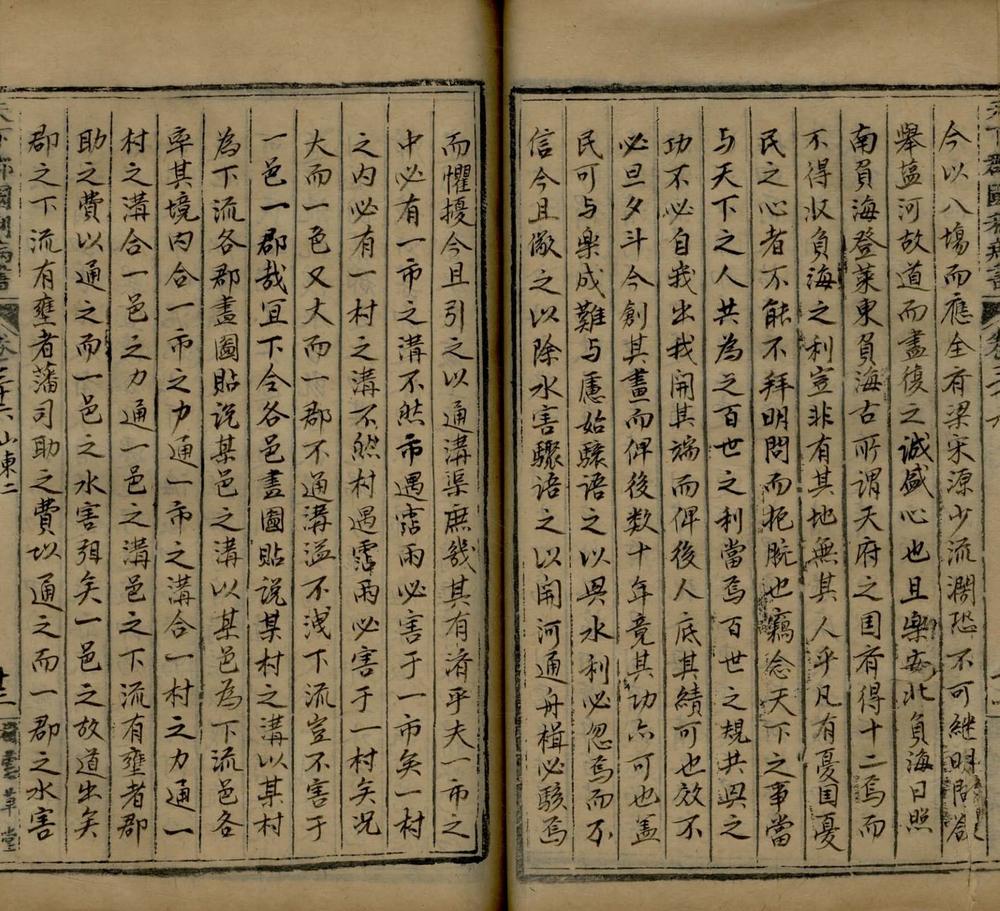 今以八塲而應全有梁宋源少流澗恐不可継明問
舉鹽河故道而盡復之誠盛心也且樂安北負海日照
南負海登萊東負海古所謂天府之国斉得十二焉而
不得収負海之利豈非有其地無其人乎凡有憂国憂
民之心者不能不拜明問而扼腕也竊念天下之事當
与天下之人共為之百世之利當爲百世之規共興之
功不必自我出我開其端而俾後人底其績可也效不
必旦夕斗今創其畫而俾後数十年竟其功亦可也盖
民可与樂成難与慮始驟語之以興水利必忽焉而不
信今且儆之以除水害驟語之以開河通舟楫必駭焉
而懼擾今且引之以通溝渠庶幾其有濟乎夫一市之
中必有一市之溝不然市遇霑雨必害于一市矣一村
之内必有一村之溝不然村遇霑雨必害于一村矣况
大而一邑又大而一郡不通溝溢不洩下流豈不害于
一邑一郡哉宜下令各邑畫圖貼説某村之溝以某村
為下流各郡畫圖貼説某邑之溝以某邑為下流邑各
率其境内合一市之力通一市之溝合一村之力通一
村之溝合一邑之力通一邑之溝邑之下流有壅者郡
助之費以通之而一邑之水害弭矣一邑之故道出矣
郡之下流有壅者藩司助之費以通之而一郡之水害
天下郡國利病書 卷之三十六 山東二 十三